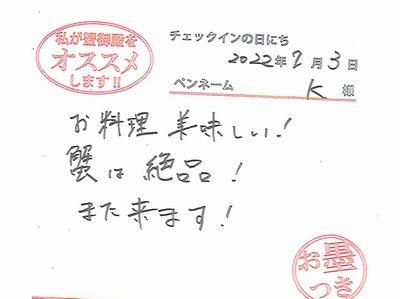 私が蟹御殿を
オススメ
します!!
チェックインの日にち
2022年9月3日
ペンネーム K 様
お料理 美味しい!
蟹は 絶品!
また来ます!
お墨
つき